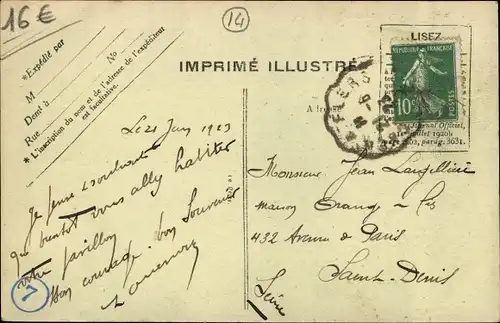 16€
14
LISEZ
*Expédié par
M
No
Demt à
Rue
*L'inscription du nom et de l'adresse de l'expéditeur
est facultative.
IMPRIMÉ ILLUSTRÉ
RÉPUBLIQUE FRANÇAISE
10c
POSTES
Journal Officiel,
juillet 1920,
parag. 3631.
Le 21 Juin 1923
Je pense
que bientôt vous allez habiter
votre pavillon
Bon courage. bon Souvenir
7
Monsieur Jean
maison Orange
432 Avenue de Paris
Saint-Denis
Seine